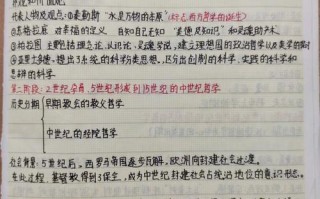 代表人物及观点：①泰勒斯“水是万物的本原”（标志着西方哲学的诞生）
②苏格拉底 对幸福的定义 自知自己无知 “美德即知识”和灵魂助产术。
③柏拉图 主要包括理念论、认识论、灵魂学说，建立理想国的政治哲学以及美学的探讨
④亚里士多德：提出了系统的科学分类思想，区分出创制的科学、实践的科学和
思辨的科学
第二阶段：2世纪 5世纪形成到15世纪的中世纪哲学
历史分期 早期教会的教父哲学
中世纪的经院哲学
社会背景：5世纪后，西罗马帝国逐步瓦解，欧洲向封建社会过渡。
在此过程，基督教得到了保全，成为中世纪封建社会占统治地位的意识形态。